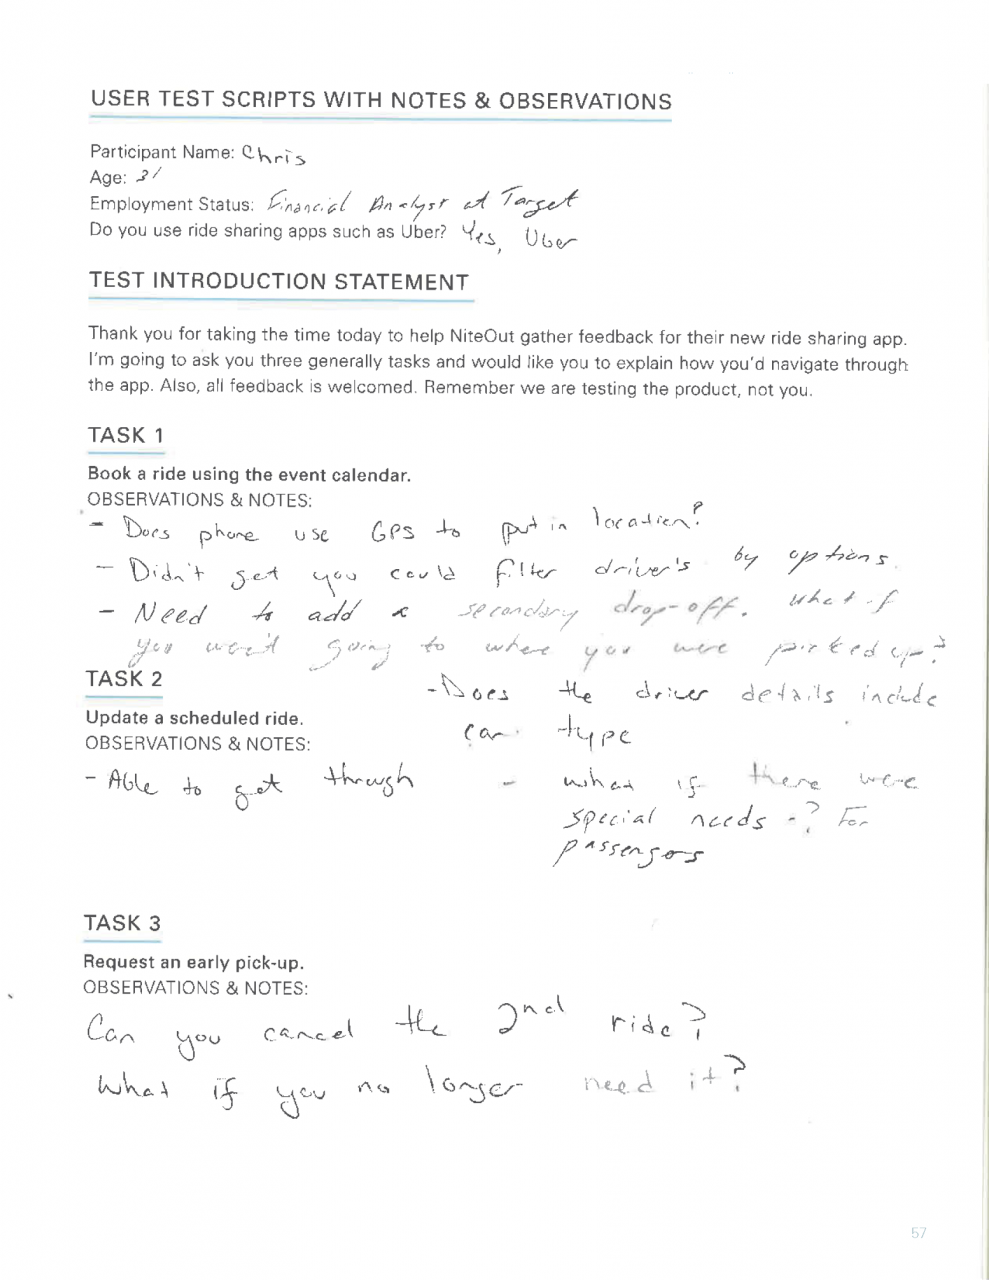 USER TEST SCRIPTS WITH NOTES & OBSERVATIONS
Participant Name: Chris
Age: 31
Employment Status: Financial Analyst at Target
Do you use ride sharing apps such as Uber? Yes, Uber
TEST INTRODUCTION STATEMENT
Thank you for taking the time today to help NiteOut gather feedback for their new ride sharing app.
I'm going to ask you three generally tasks and would like you to explain how you'd navigate through
the app. Also, all feedback is welcomed. Remember we are testing the product, not you.
TASK 1
Book a ride using the event calendar.
OBSERVATIONS & NOTES:
- Does phone use GPS to put in location?
- Didn't get you could filter driver's by options.
- Need to add a secondary drop-off. What if
you won't going to where you were picked up?
- Does the driver details include
car type
- what if there were
special needs -? For
passengers
TASK 2
Update a scheduled ride.
OBSERVATIONS & NOTES:
- Able to get through
TASK 3
Request an early pick-up.
OBSERVATIONS & NOTES:
Can you cancel the 2nd ride?
What if you no longer need it?
57